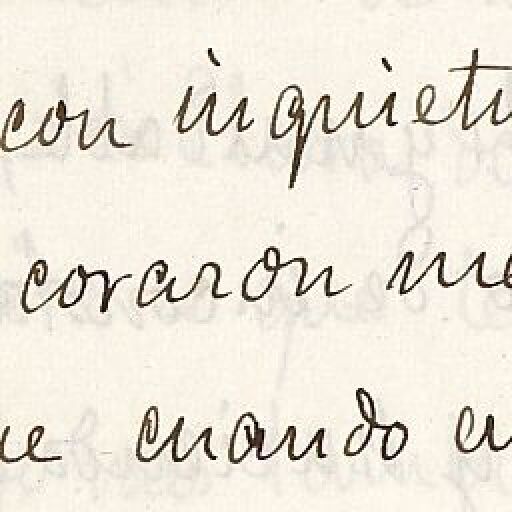 con inquietu
corazon me
ue cuando en